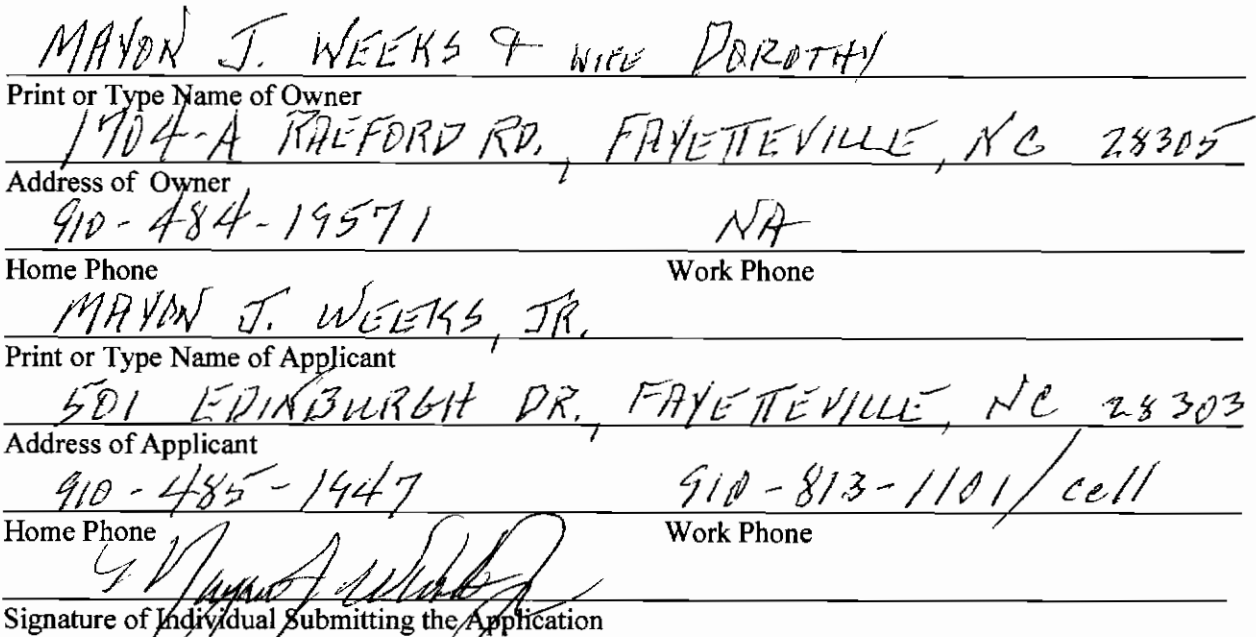 MAYON J. WEEKS & WIFE DOROTHY
Print or Type Name of Owner
1704-A RAEFORD RD., FAYETTEVILLE, NC 28305
Address of Owner
910-484-19571 NA
Home Phone Work Phone
MAYON J. WEEKS, JR.
Print or Type Name of Applicant
501 EDINBURGH DR., FAYETTEVILLE, NC 28303
Address of Applicant
910-485-1947 910-813-1101/cell
Home Phone Work Phone
Signature of Individual Submitting the Application